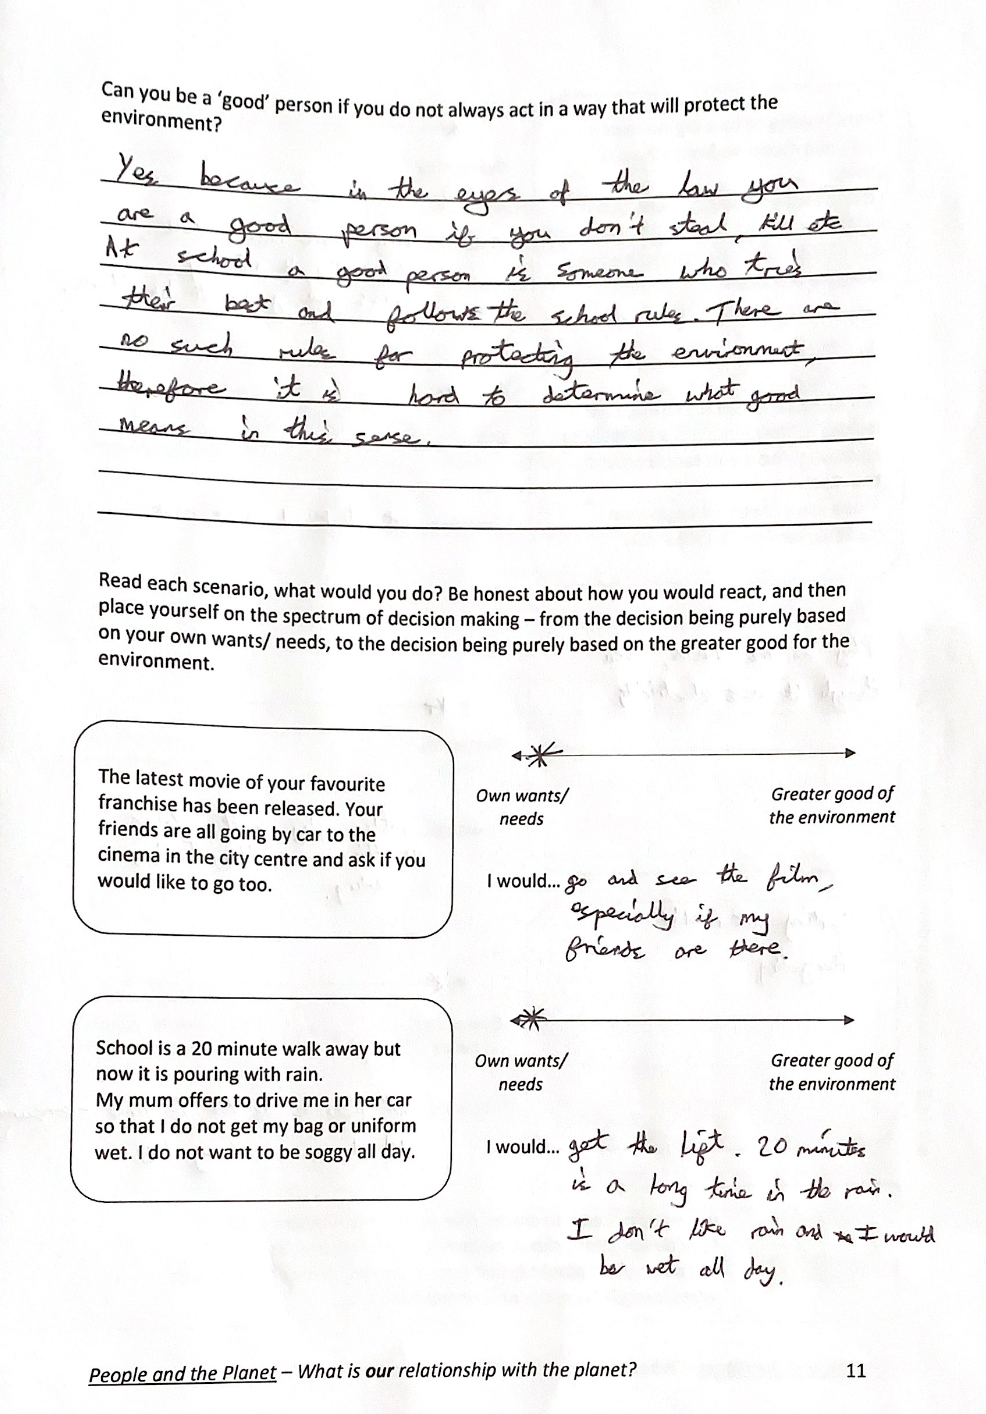 Can you be a 'good' person if you do not always act in a way that will protect the
environment?
Yes because in the eyes of the law you
are a good person if you don't steal, kill etc
At school a good person is someone who tries
their best and follows the school rules. There are
no such rules for protecting the environment,
therefore it is hard to determine what good
means in this sense.
Read each scenario, what would you do? Be honest about how you would react, and then
place yourself on the spectrum of decision making – from the decision being purely based
on your own wants/ needs, to the decision being purely based on the greater good for the
environment.
The latest movie of your favourite
franchise has been released. Your
friends are all going by car to the
cinema in the city centre and ask if you
would like to go too.
Own wants/
needs
Greater good of
the environment
I would... go and see the film,
especially if my
friends are there.
School is a 20 minute walk away but
now it is pouring with rain.
My mum offers to drive me in her car
so that I do not get my bag or uniform
wet. I do not want to be soggy all day.
Own wants/
needs
Greater good of
the environment
I would... get the lift. 20 minutes
is a long time in the rain.
I don't like rain and I would
be wet all day.
People and the Planet – What is our relationship with the planet?
11